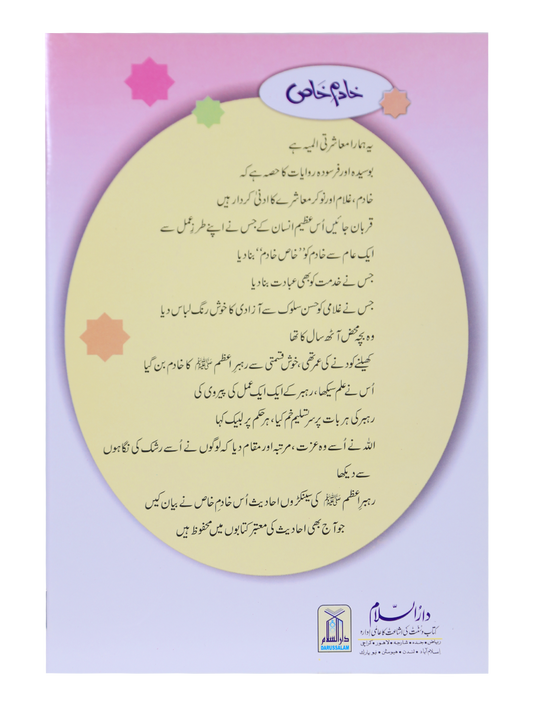 خادمِ خاص
یہ ہمارا معاشرتی المیہ ہے
بوسیدہ اور فرسودہ روایات کا حصہ ہے کہ
خادم، غلام اور نوکر معاشرے کا ادنیٰ کردار ہیں
قربان جائیں اُس عظیم انسان کے جس نے اپنے طرزِ عمل سے
ایک عام سے خادم کو ’’خاص خادم‘‘ بنا دیا
جس نے خدمت کو بھی عبادت بنا دیا
جس نے غلامی کو حسن سلوک سے آزادی کا خوش رنگ لباس دیا
وہ بچہ محض آٹھ سال کا تھا
کھیلنے کودنے کی عمر تھی، خوش قسمتی سے رہبرِ اعظم ﷺ کا خادم بن گیا
اُس نے علم سیکھا، رہبر کے ایک ایک عمل کی پیروی کی
رہبر کی ہر بات پر سرِ تسلیم خم کیا، ہر حکم پر لبیک کہا
اللہ نے اُسے وہ عزت، مرتبہ اور مقام دیا کہ لوگوں نے اُسے رشک کی نگاہوں
سے دیکھا
رہبرِ اعظم ﷺ کی سینکڑوں احادیث اُس خادمِ خاص نے بیان کیں
جو آج بھی احادیث کی معتبر کتابوں میں محفوظ ہیں
دارُالسّلام
کتاب و سنت کی اشاعت کا عالمی ادارہ
ریاض • جدہ • شارجہ • لاہور • کراچی
اسلام آباد • لندن • ہیوسٹن • نیو یارک
دارالسلام
DARUSSALAM